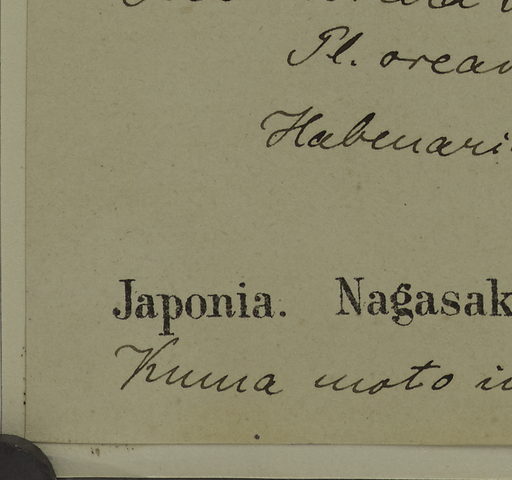 Pl. orean
Habenari
Japonia. Nagasak
Kuma moto in